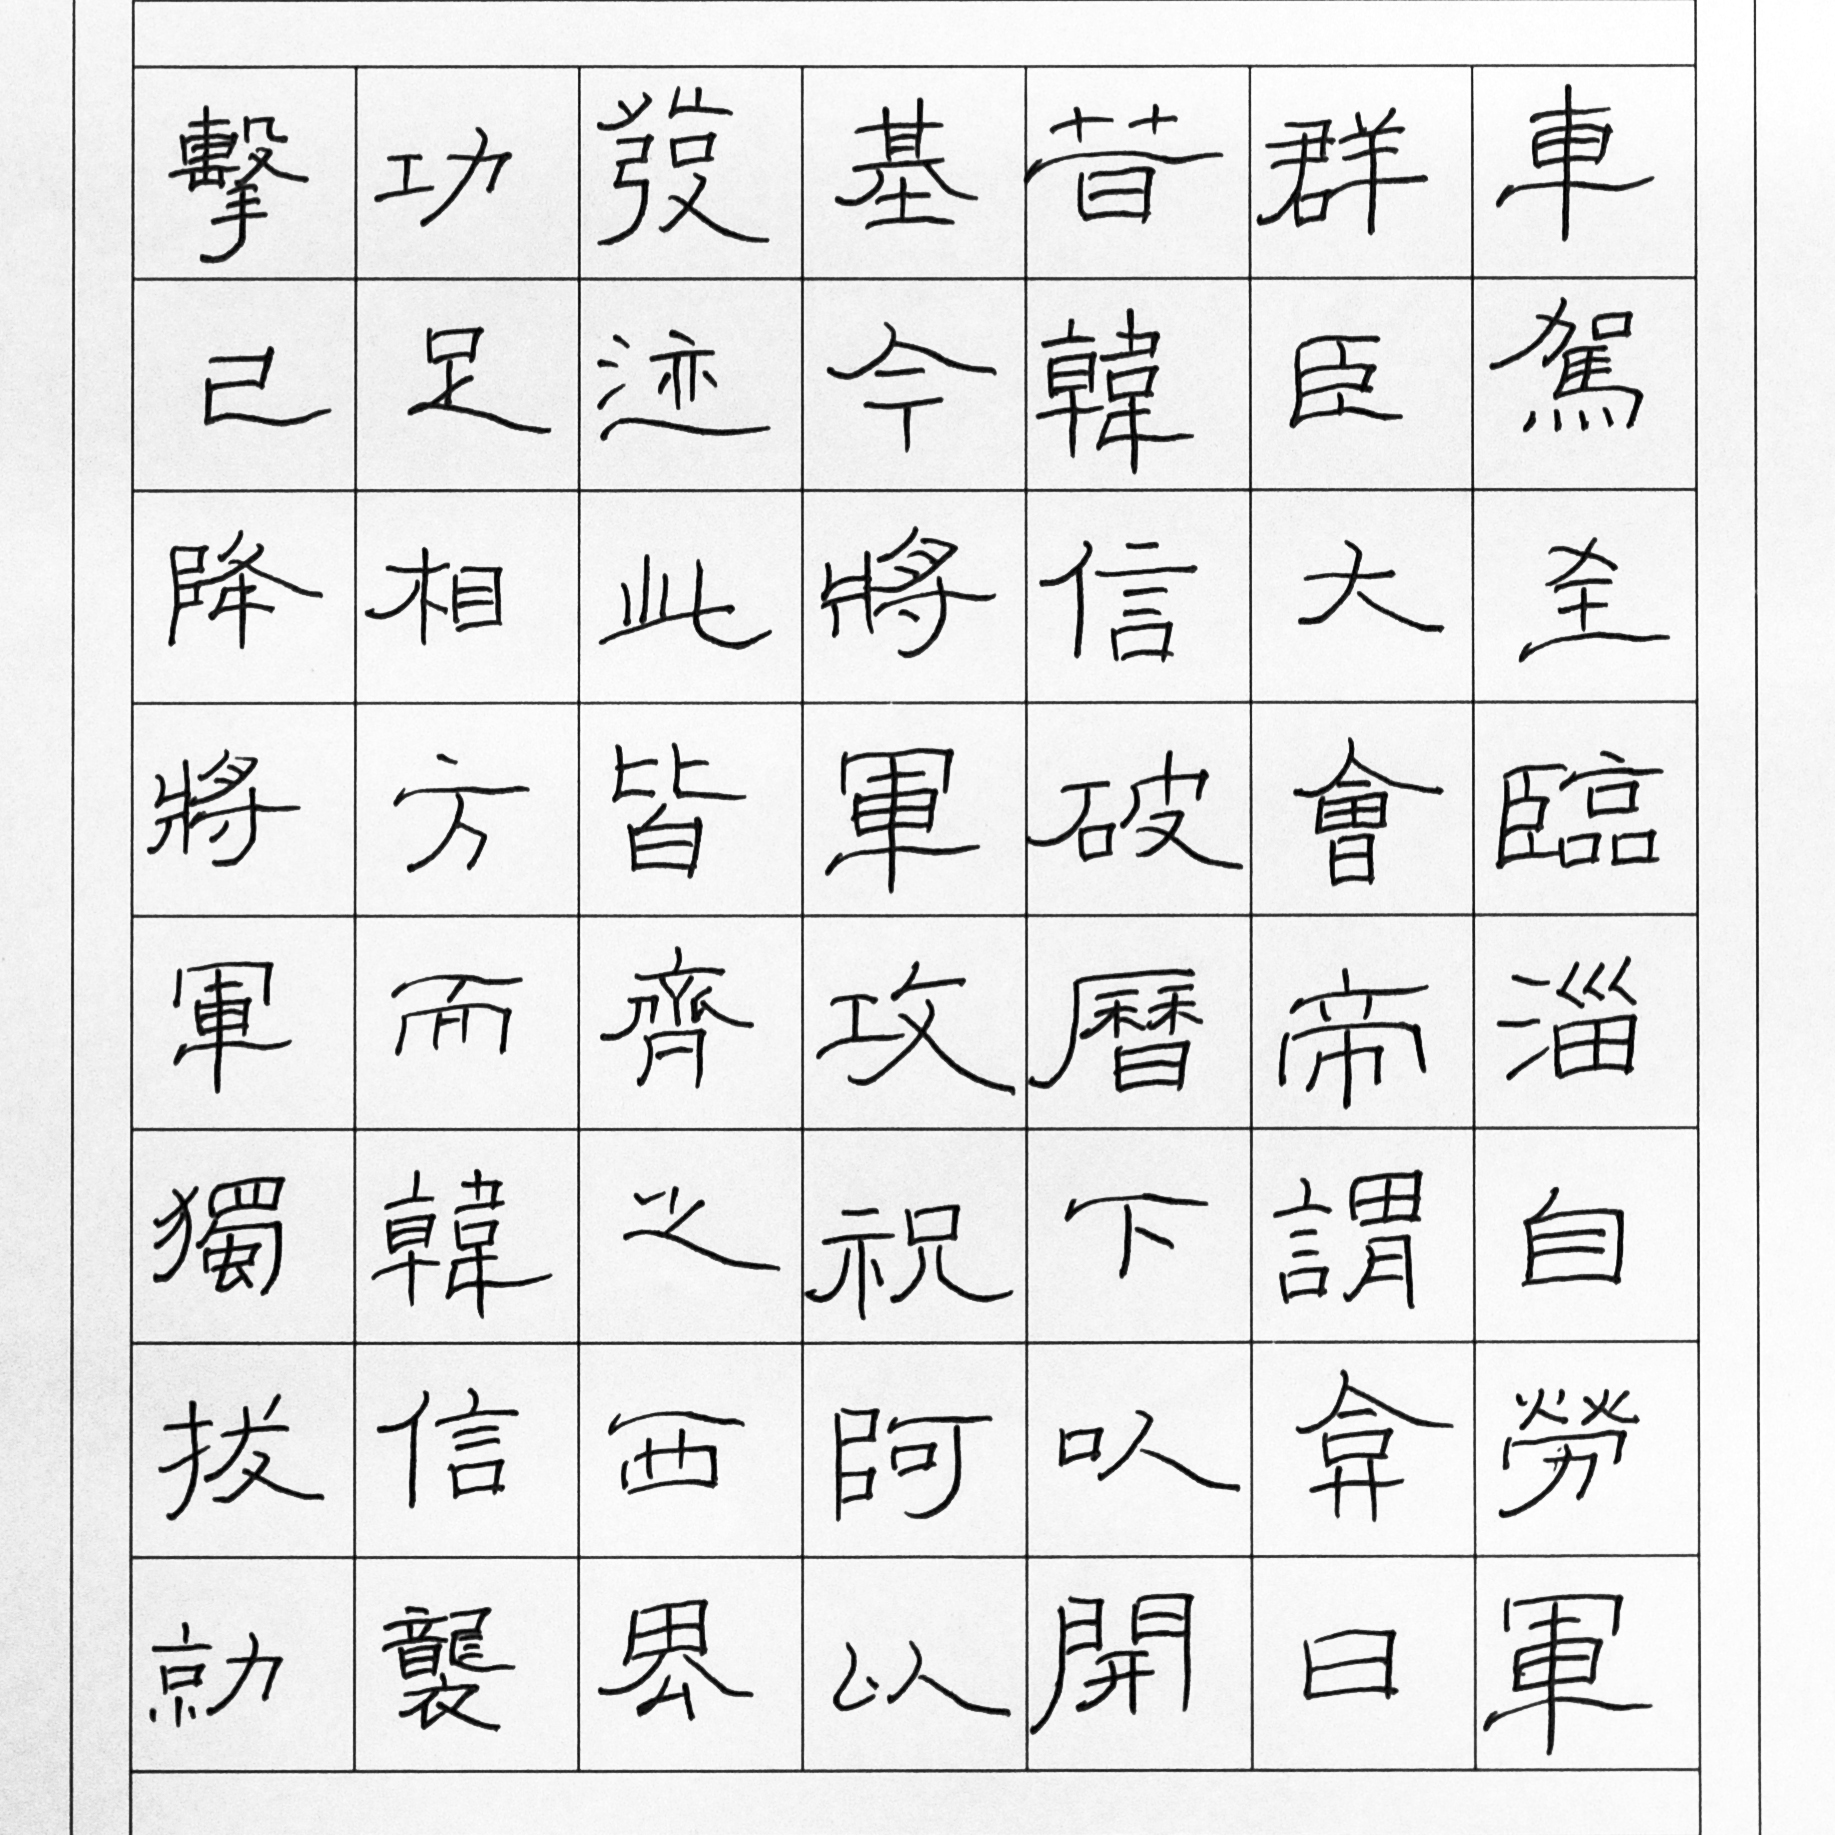 車駕至臨淄自勞軍
群臣大會帝謂弇曰
昔韓信破曆下以開
基今將軍攻祝阿以
發迹此皆齊之西界
功足相方而韓信襲
擊已降將軍獨拔勍